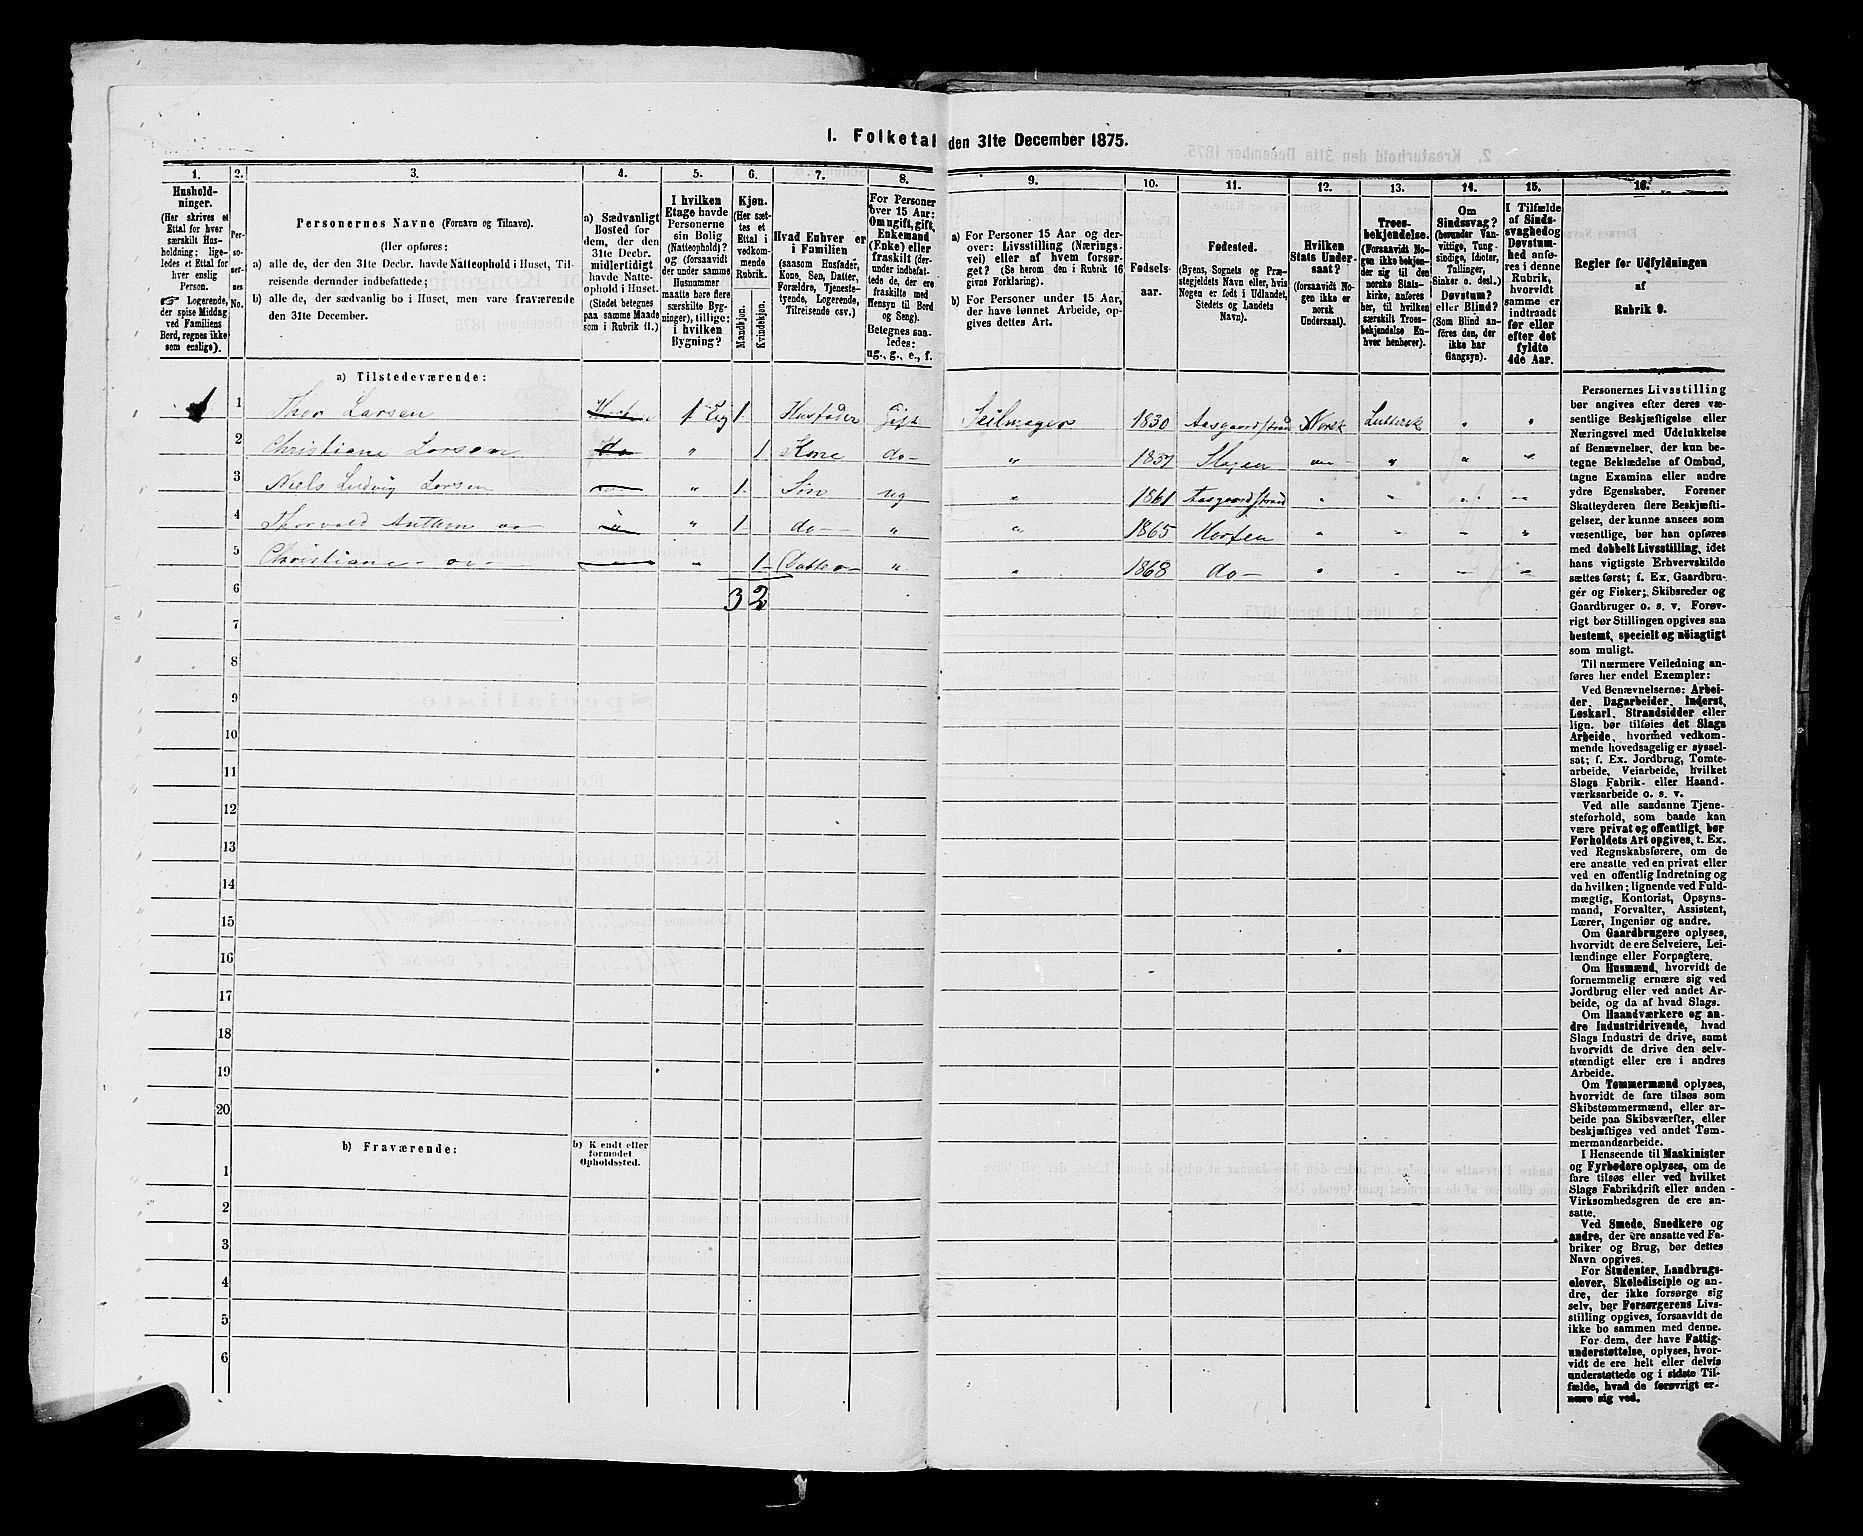 1. Folketal den 31te December 1875.
1. 2. 3. 4. 5. 6. 7. 8. 9. 10. 11. 12. 13. 14. 15. 16.
Hushold-
ninger.
(Her skrives et
Ettal for hver
særskilt Hus-
holdning; lige-
ledes et Ettal for
hver enslig
Person.
☞ Logerende,
der spise Middag
ved Familiens
Bord, regnes ikke
som enslige).
Per-
so-
ner-
nes
No.
Personernes Navne (Fornavn og Tilnavn).
(Her opføres:
a) alle de, der den 31te Decbr. havde Natteophold i Huset, Til-
reisende derunder indbefattede;
b) alle de, der sædvanlig bo i Huset, men vare fraværende
den 31te December.
a) Sædvanligt
Bosted for
dem, der den
31te Decbr.
midlertidigt
havde Natte-
ophold i Huset.
(Stedet betegnes
paa samme Maade
som i Rubrik 11.)
I hvilken
Etage havde
Personerne
sin Bolig
(Natteophold)?
og (forsaavidt
der under samme
Husnummer
maatte høre flere
særskilte Byg-
ninger), tillige:
i hvilken
Bygning?
Kjøn.
(Her sæt-
tes et
Ettal i
vedkom-
mende
Rubrik.
Mandkjøn.
Kvindekjøn.
Hvad Enhver er
i Familien
(saasom Husfader,
Kone, Søn, Datter,
Forældre, Tjeneste-
tyende, Logerende,
Tilreisende osv.)
For Personer
over 15 Aar:
Om ugift, gift,
Enkemand
(Enke) eller
fraskilt (der-
under indbefat-
tede de, der ere
fraskilte med
Hensyn til Bord
og Seng).
Betegnes saa-
ledes:
ug., g., e., f.
a) For Personer 15 Aar og der-
over: Livsstilling (Nærings-
vei) eller af hvem forsør-
get? (Se herom den i Rubrik 16
givne Forklaring).
b) For Personer under 15 Aar,
der have lønnet Arbeide, op-
gives dettes Art.
Fødsels-
aar.
Fødested.
(Byens, Sognets og Præ-
stegjeldets Navn eller, hvis
Nogen er født i Udlandet,
Stedets og Landets
Navn).
Hvilken
Stats Under-
saat?
(forsaavidt No-
gen ikke er
norsk
Undersaat).
Troes-
bekjendelse.
(Forsaavidt No-
gen ikke bekjen-
der sig til den
norske Stats-
kirke, anføres
her, til hvilken
særskilt Troes-
bekjendelse En-
hver henhører).
Om
Sindssvag?
(herunder Van-
vittige, Tung-
sindige, Idioter,
Tallinger,
Sinker o. desl.)
Døvstum?
eller Blind?
(Som Blind an-
føres den, der
ikke har
Gangsyn).
I Tilfælde
af Sinds-
svaghed og
Døvstum-
hed anfø-
res i denne
Rubrik,
hvorvidt
samme er
indtraadt
før eller
efter det
fyldte
4de Aar.
Regler for Udfyldningen
af
Rubrik 9.
a) Tilstedeværende:
1 Thor Larsen 1 1. Husfader gift Seilmager 1830 Aasgaardstrand Norsk Luthersk
2 Christiane Larsen " 1 Kone do- " 1837 Slagen
3 Niels Ludvig Larsen " 1. Sön ug " 1861 Aasgaardstrand
4 Thorvald do- " 1- do- " " 1865 Horten
5 Christiane - do- " 1- Datter " " 1868 do-
6 3 2
7
8
9
10
11
12
13
14
15
16
17
18
19
20
b) Fraværende:
b) Kjendt eller
formodet
Opholdssted.
1
2
3
4
5
6
Personernes Livsstilling
bør angives efter deres væ-
sentlige Beskjæftigelse eller
Næringsvei med Udelukkelse
af Benævnelser, der kun be-
tegne Beklædelse af Ombud,
tagne Examina eller andre
ydre Egenskaber. Forener
Skatteyderen flere Beskjæfti-
gelser, der kunne ansees som
væsentlige, bør han opføres
med dobbelt Livsstilling, idet
hans vigtigste Erhvervskilde
sættes først; f. Ex. Gaardbru-
ger og Fisker; Skibsreder og
Gaardbruger o. s. v. Forøv-
rigt bør Stillingen opgives saa
bestemt, specielt og nøiagtigt
som muligt.
Til nærmere Veiledning an-
føres her endel Exempler:
Ved Benævnelserne: Arbei-
der, Dagarbeider, Inderst,
Løskarl, Strandsidder eller
lign. bør tilføies det Slags
Arbeide, hvormed vedkom-
mende hovedsagelig er syssel-
sat; f. Ex. Jordbrug, Tomte-
arbeide, Veiarbeide, hvilket
Slags Fabrik- eller Haand-
værksarbeide o. s. v.
Ved alle saadanne Tjene-
steforhold, som baade kan
være privat og offentligt, bør
Forholdets Art opgives, t. Ex.
ved Regnskabsførere, om de
ere ansatte ved en privat eller
ved en offentlig Indretning og
da hvilken; lignende ved Fuld-
mægtig, Kontorist, Opsyns-
mand, Forvalter, Assistent,
Lærer, Ingeniør og andre.
Om Gaardbrugere oplyses,
hvorvidt de ere Selveiere, Lei-
lændinge eller Forpagtere.
Om Husmænd, hvorvidt de
fornemmelig ernære sig ved
Jordbrug eller ved andet Ar-
beide, og da af hvad Slags.
Om Haandværkere og an-
dre Industridrivende, hvad
Slags Industri de drive, samt
hvorvidt de drive den selv-
stændigt eller ere i andres
Arbeide.
Om Tømmermænd oplyses,
hvorvidt de fare tilsøs som
Skibstømmermænd, eller ar-
beide paa Skibsværfter, eller
beskjæftiges ved andet Tøm-
mermandsarbeide.
I Henseende til Maskinister
og Fyrbødere oplyses, om de
fare tilsøs eller ved hvilket
Slags Fabrikdrift eller anden
Virksomhedsgren de ere an-
satte.
Ved Smede, Snedkere og
andre, der ere ansatte ved Fa-
briker og Brug, bør dettes
Navn opgives.
For Studenter, Landbrugs-
elever, Skoledisciple og an-
dre, der ikke forsørge sig
selv, bør Forsørgerens Livs-
stilling opgives, forsaavidt de
ikke bo sammen med denne.
For dem, der have Fattig-
understøttelse, oplyses, hvor-
vidt de ere helt eller delvis
understøttede og i sidste Til-
fælde, hvad de forøvrigt er-
nære sig ved.